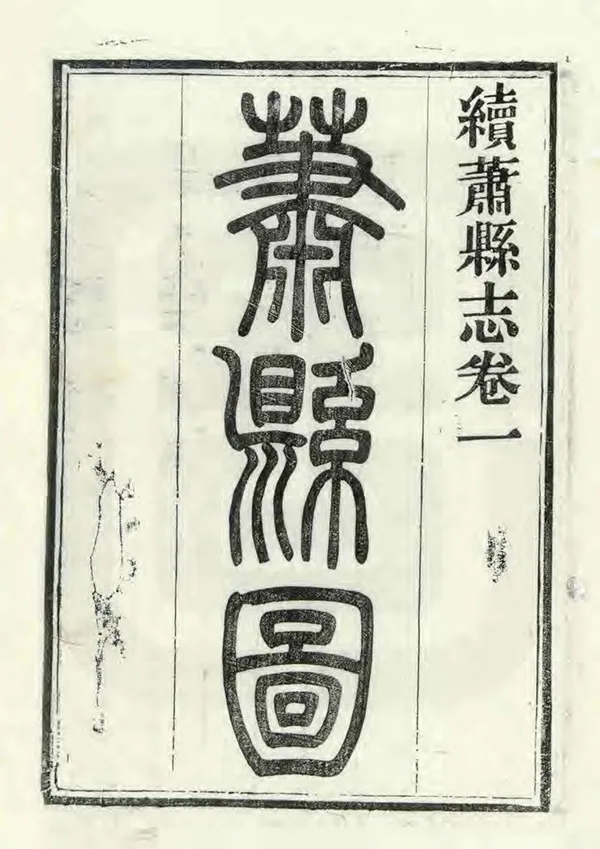 續蕭縣志卷一
蕭縣圖